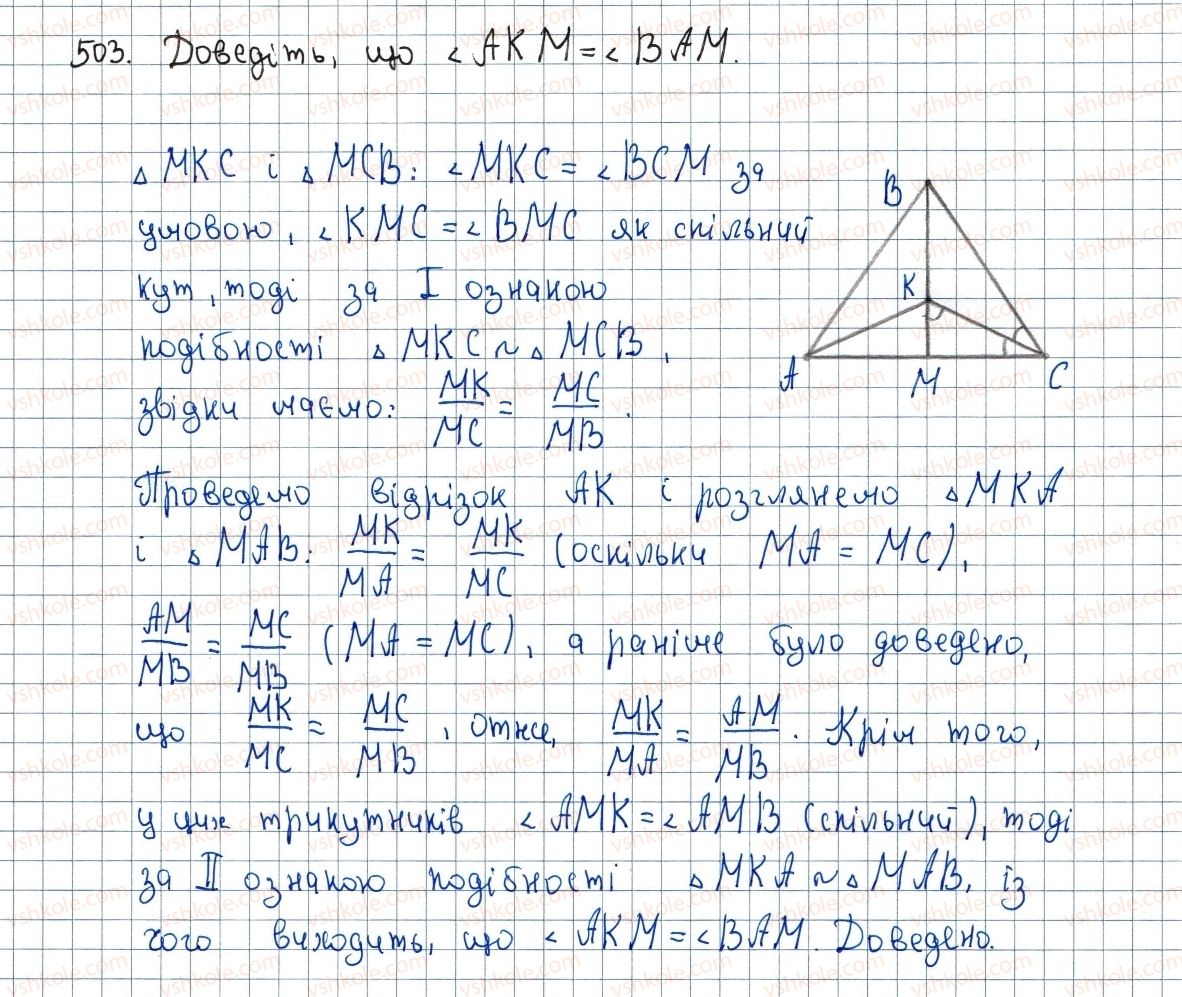 503. Доведіть, що ∠AKM = ∠BAM.
△MKC і △MCB: ∠MKC = ∠BCM за
умовою, ∠KMC = ∠BMC як спільний
кут, тоді за I ознакою
подібності △MKC ~ △MCB,
звідки маємо: MK/MC = MC/MB.
B
K
A
M
C
Проведемо відрізок AK і розглянемо △MKA
і △MAB: MK/MA = MK/MC (оскільки MA = MC),
AM/MB = MC/MB (MA = MC), а раніше було доведено,
що MK/MC = MC/MB, отже, MK/MA = AM/MB. Крім того,
у цих трикутників ∠AMK = ∠AMB (спільний), тоді
за II ознакою подібності △MKA ~ △MAB, із
чого виходить, що ∠AKM = ∠BAM. Доведено.
vshkole.com